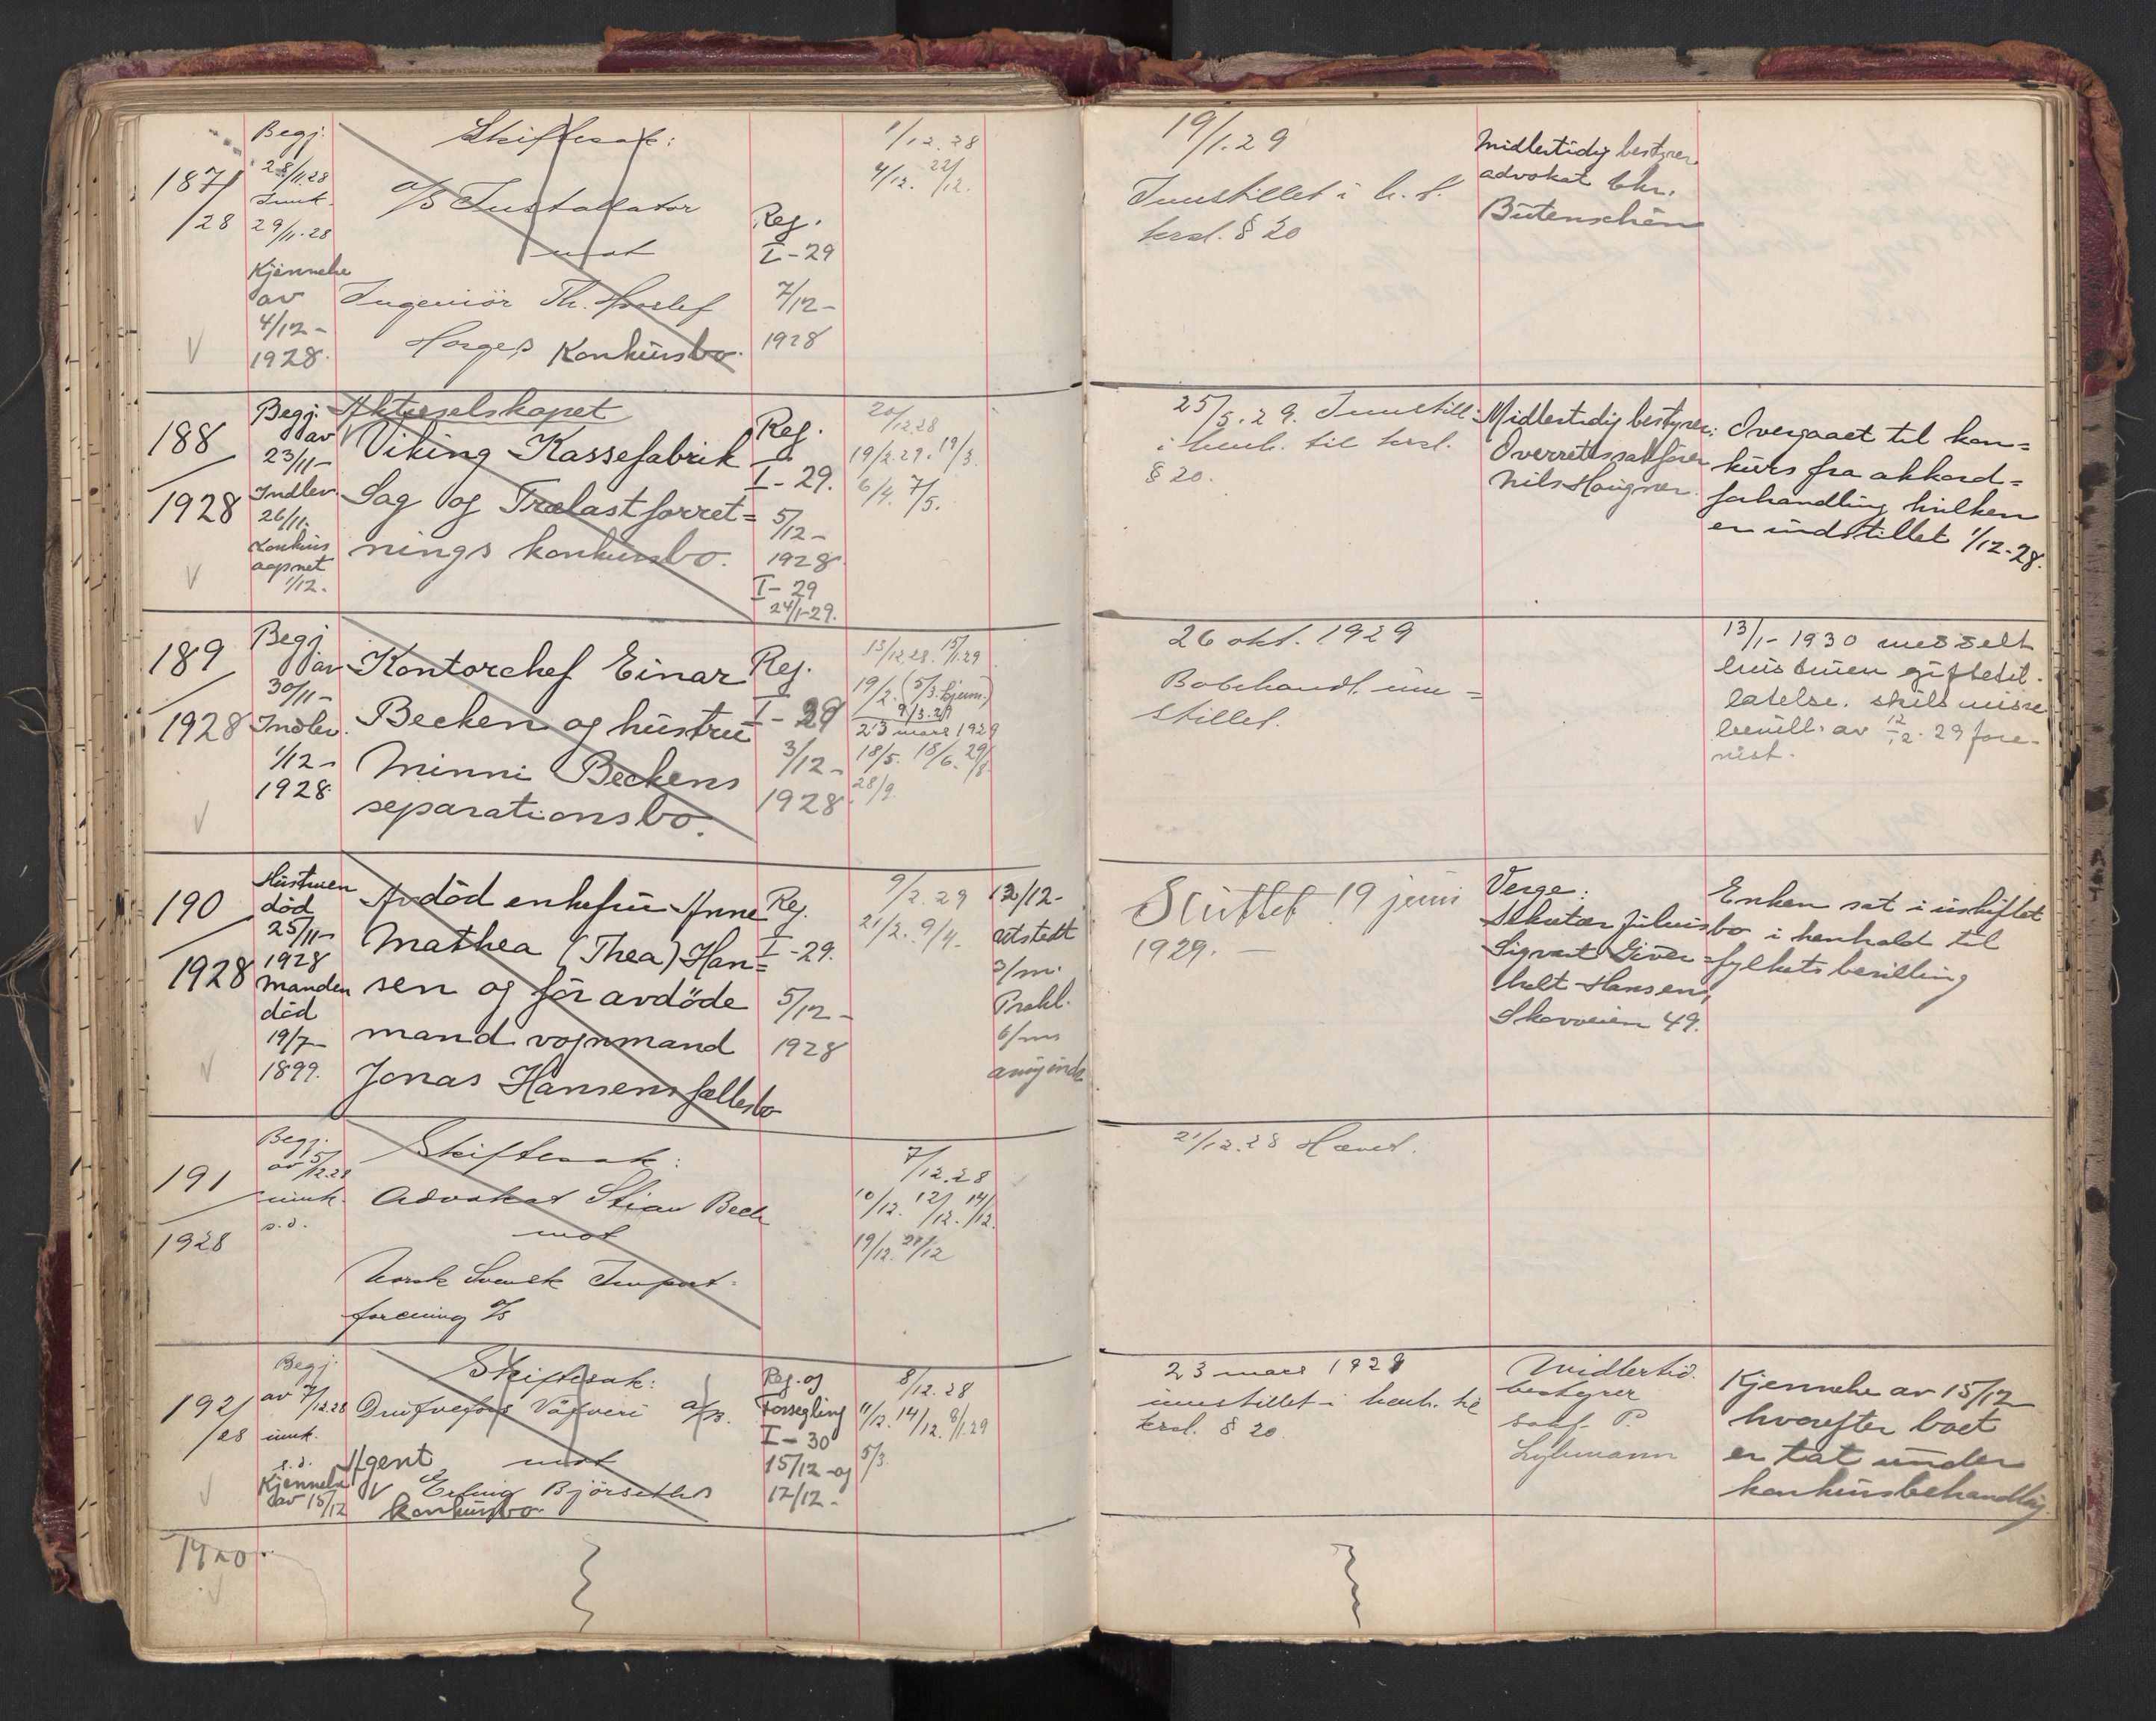 187/28
Begj.
28/11.28
Innk.
29/11.28
Kjennelse
av
4/12-
1928.
Skiftesak:
A/S Installator
mot
Ingeniör Th.
Konkursbo.
Reg.
I-29
7/12-
1928
1/12.28
4/12. 22/12.
19/1.29
Innstillet i h. t.
krsl. § 20
Midlertidig bestyrer
advokat Chr.
Butenschön
188
1928
Begj.
av
23/11-
Indlev.
26/11.
Konkurs
aapnet
1/12.
Aktieselskapet
Viking Kassefabrik
Sag og Trælastforret=
nings konkursbo.
Reg.
I-29.
5/12-
1928.
I-29
24/1-29.
20/12.28
19/2.29. 19/3.
6/4. 7/5.
25/5.29. Innstill.
i henh. til krsl.
§ 20.
Midlertidig bestyrer:
Overrettssakfører
Nils Haugner.
Overgaaet til kon=
kurs fra akkord=
forhandling hvilken
er indstillet 1/12-28.
189
1928
Begj
av
30/11-
Indlev.
1/12-
1928.
Kontorchef Einar
Becken og hustru
Minni Beckens
separationsbo.
Reg.
I-29
3/12-
1928.
13/12.28. 15/1.29
19/2. (5/3. kjenn.)
9/3.29
23 mars 1929
18/5. 18/6. 29/8.
28/9.
26 okt. 1929
Bobehandl. inn=
stillet.
13/1-1930 meddelt
hustruen giftetil-
latelse. skilsmisse
bevill. av 12/12.29 fore-
vist.
190
1928
Hustruen
död
25/11-
1928
Manden
död
19/7-
1899.
Avdöd enkefru Anne
Mathea (Thea) Han=
sen og för avdöde
mand vognmand
Jonas Hansens fællesbo
Reg.
I-29.
5/12-
1928
9/2.29
21/2. 9/4.
13/12-
utstedt
3/m.
Prokl.
6/ms
Sluttet 19 juni
1929.-
Verge:
Sekretær Julius
Sigvart Siver=
holt Hansen,
Skovveien 49.
Enken sat i uskiftet
bo i henhold til
fylkets bevilling
191
1928
Begj.
av 5/12.28
innk.
s.d.
Skiftesak:
Advokat Stian Bech
mot
Norsk Svensk Import-
forening A/S
7/12.28
10/12. 12/12. 14/12.
19/12. 21/12
21/12.28 Hævet.
192/28
Begj.
av 7/12.28
innk.
s.d.
Kjennelse
av 15/12
Skiftesak:
Väfveri A/B.
mot
Agent
Erling Björseths
konkursbo.
Reg. og
Forsegling
I-30
15/12-og
17/12-
8/12.28
11/12. 14/12. 8/1.29
5/3.
23 mars 1929
innstillet i henh. til
krsl. § 20
Midlertid.
bestyrer
sakf. P.
Lykmann
Kjennelse av 15/12
hvorefter boet
er tat under
konkursbehandling.
1920.